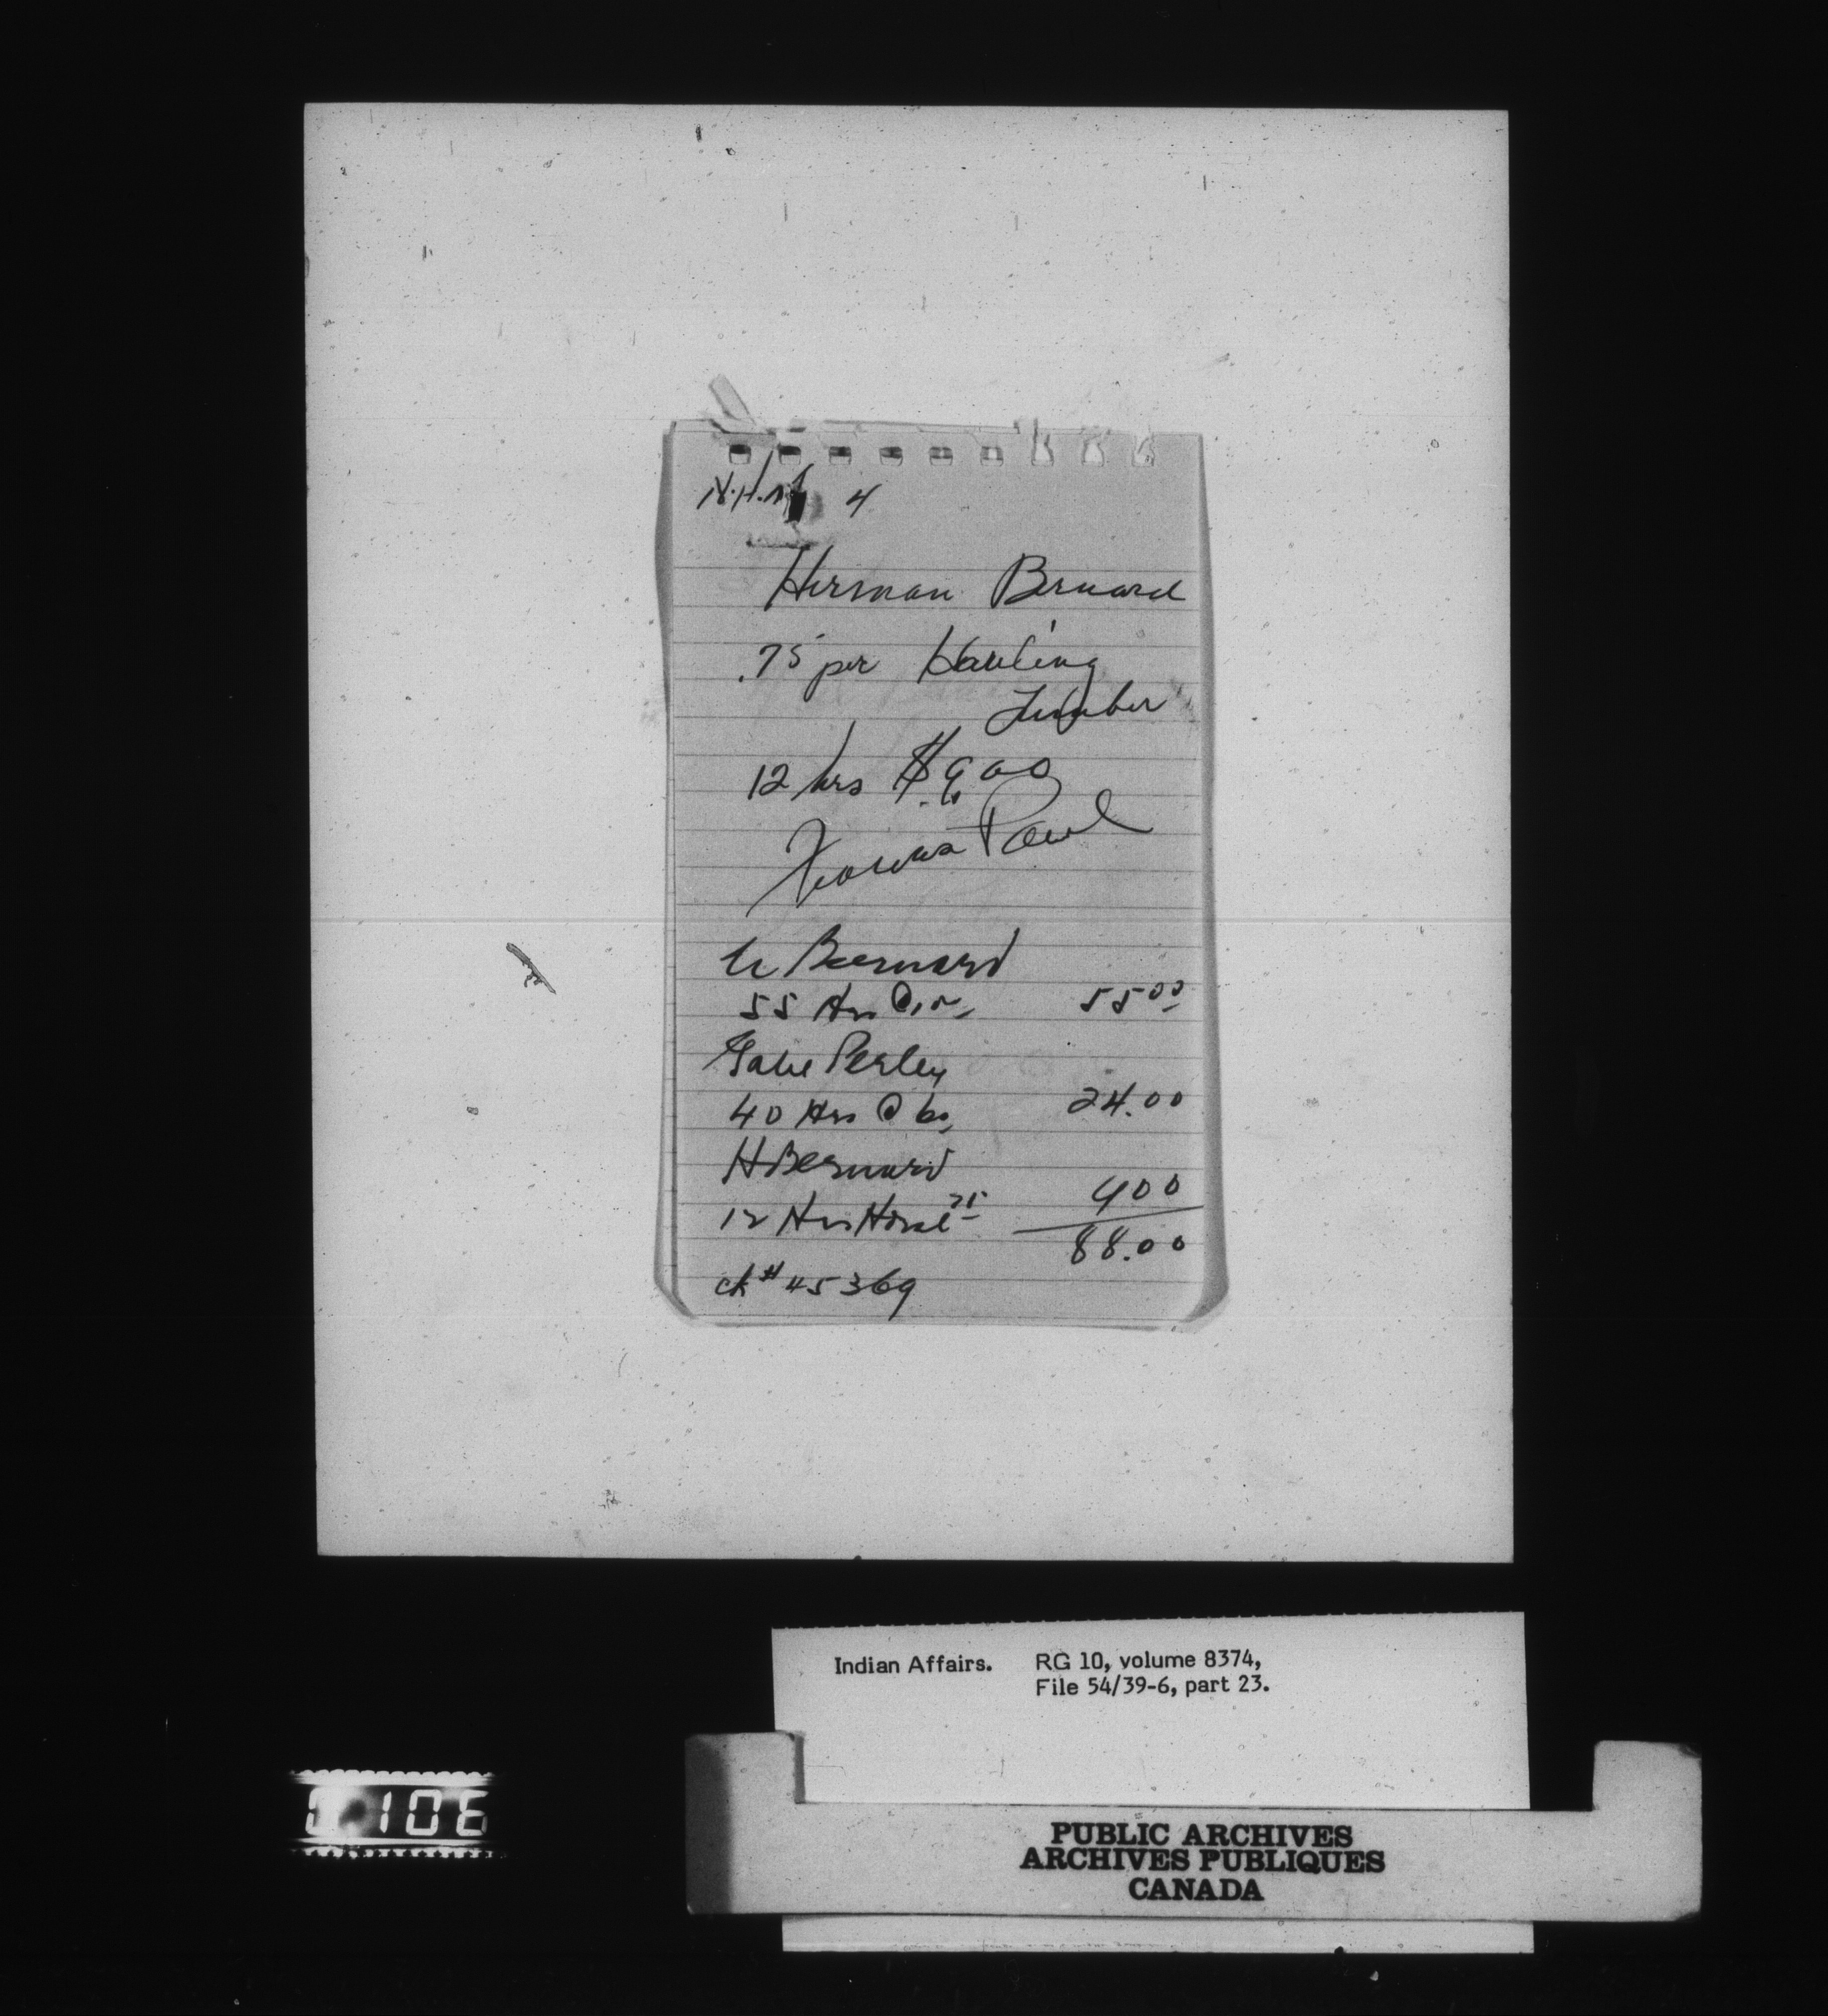 4
Herman Bernard
.75 per Hauling
Lumber
12 hrs $9.00
Paul
Bernard
55 Hrs @ 55 00
Gabe Perley
40 Hrs @ 60 24.00
H Bernard
12 Hrs Horse 75 9 00
88.00
ck # 45369
Indian Affairs. RG 10, volume 8374,
File 54/39-6, part 23.
PUBLIC ARCHIVES
ARCHIVES PUBLIQUES
CANADA